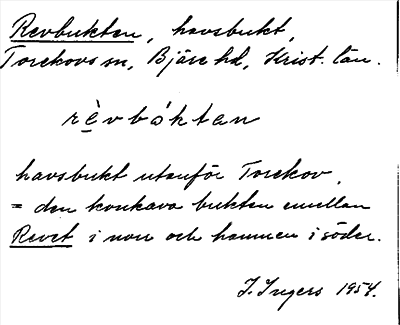 Revbukten, havsbukt,
Torekovs sn, Bjäre hd, Krist. län.
rèvbóktan
havsbukt utanför Torekov,
= den konkava bukten emellan
Revet i norr och hamnen i söder.
J. Ingers 1954.